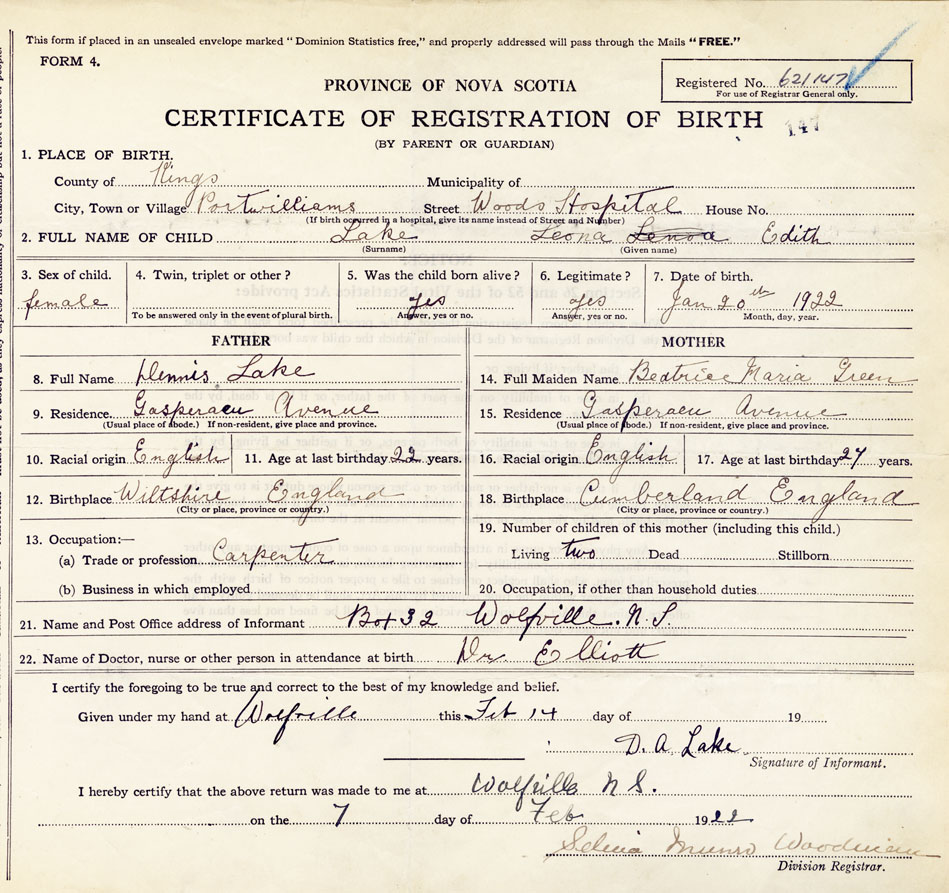 This form if placed in an unsealed envelope marked "Dominion Statistics free," and properly addressed will pass through the Mails "FREE."
FORM 4.
Registered No. 621147
For use of Registrar General only.
PROVINCE OF NOVA SCOTIA
CERTIFICATE OF REGISTRATION OF BIRTH
147
(BY PARENT OR GUARDIAN)
1. PLACE OF BIRTH.
County of Kings Municipality of
City, Town or Village Portwilliams Street Woods Hospital House No.
(If birth occurred in a hospital, give its name instead of Street and Number)
2. FULL NAME OF CHILD Lake Leona Lenoa Edith
(Surname) (Given name)
3. Sex of child. 4. Twin, triplet or other? 5. Was the child born alive? 6. Legitimate? 7. Date of birth.
female yes yes Jan 20th 1922
To be answered only in the event of plural birth. Answer, yes or no. Answer, yes or no. Month, day, year.
FATHER
8. Full Name Dennis Lake
9. Residence. Gasperaeu Avenue
(Usual place of abode.) If non-resident, give place and province.
10. Racial origin English 11. Age at last birthday 22 years.
12. Birthplace Wiltshire England
(City or place, province or country.)
13. Occupation:—
(a) Trade or profession Carpenter
(b) Business in which employed
MOTHER
14. Full Maiden Name Beatrice Maria Green
15. Residence Gasperaeu Avenue
(Usual place of abode.) If non-resident, give place and province.
16. Racial origin English 17. Age at last birthday 27 years.
18. Birthplace Cumberland England
(City or place, province or country.)
19. Number of children of this mother (including this child.)
Living two Dead Stillborn
20. Occupation, if other than household duties
21. Name and Post Office address of Informant Box 32 Wolfville. N.S.
22. Name of Doctor, nurse or other person in attendance at birth Dr. Elliott
I certify the foregoing to be true and correct to the best of my knowledge and belief.
Given under my hand at Wolfville this Feb 14 day of 19
D. A. Lake
Signature of Informant.
I hereby certify that the above return was made to me at Wolfville N S.
on the 7 day of Feb 1922
Selina Munro Woodman
Division Registrar.